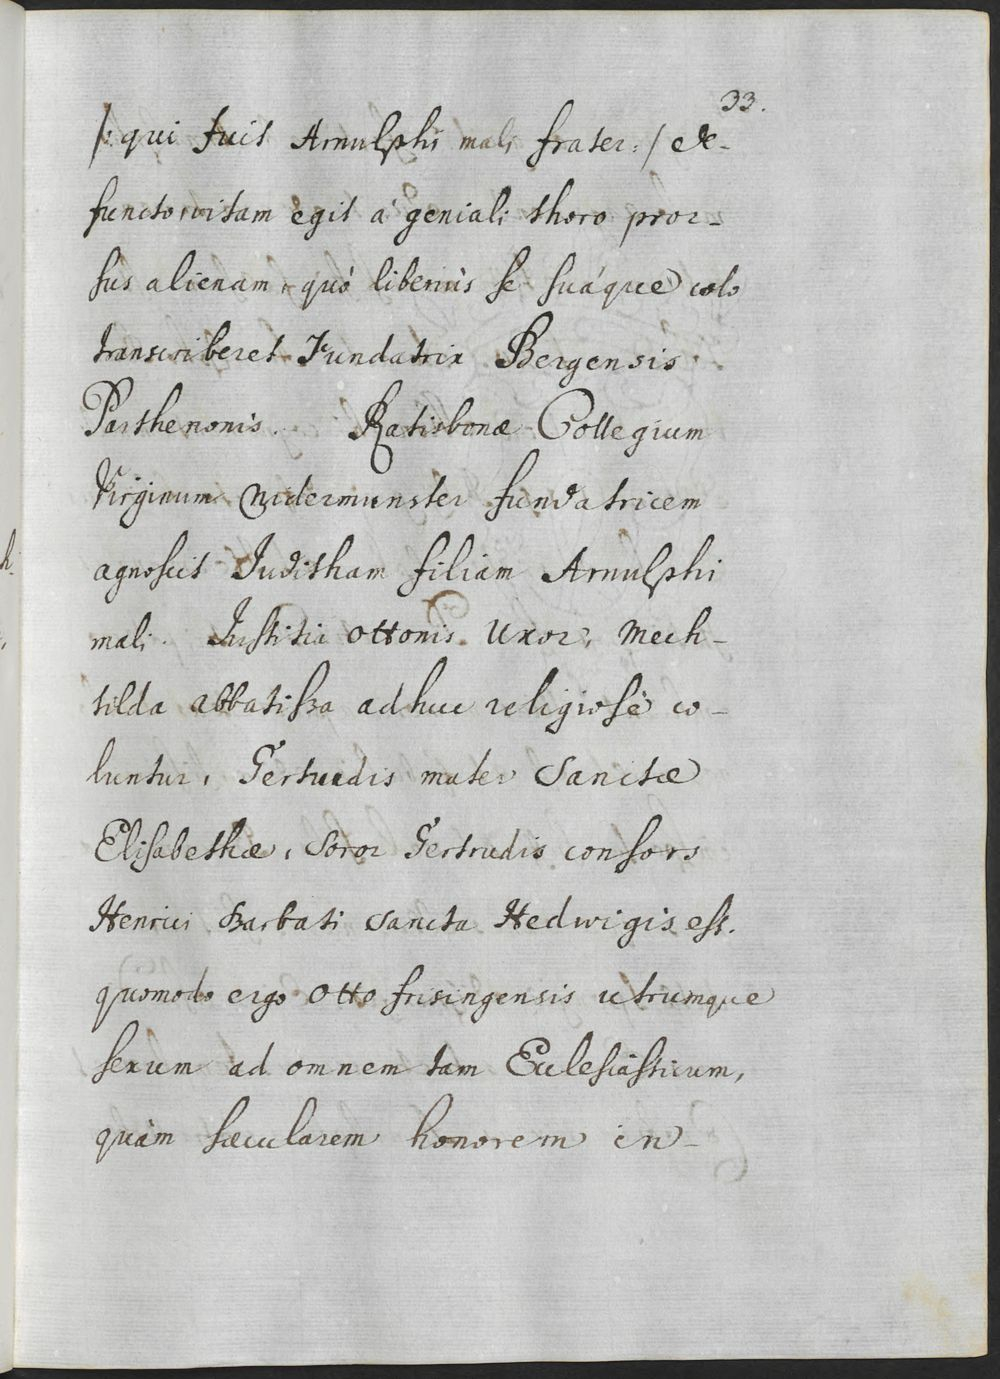 33.
/: qui fuit Arnulphi mali frater :/ de-
functo, vitam egit á geniali thoro pror-
sus alienam, quó liberiùs se suáque cœlo
transcriberet Fundatrix Bergensis
Parthenonis. Ratisbonæ Collegium
Virginum Nidermunster fundatricem
agnoscit Juditham filiam Arnulphi
mali. Justitia Ottonis Uxor, Mech-
tilda abbatißa adhuc religiosè co-
luntur, Gertrudis mater Sanctæ
Elisabethæ, Soror Gertrudis consors
Henrici Barbati Sancta Hedwigis est.
quomodo ergo Otto frisingensis utrumque
sexum ad omnem tam Ecclesiásticum,
quàm sæcularem honorem in-